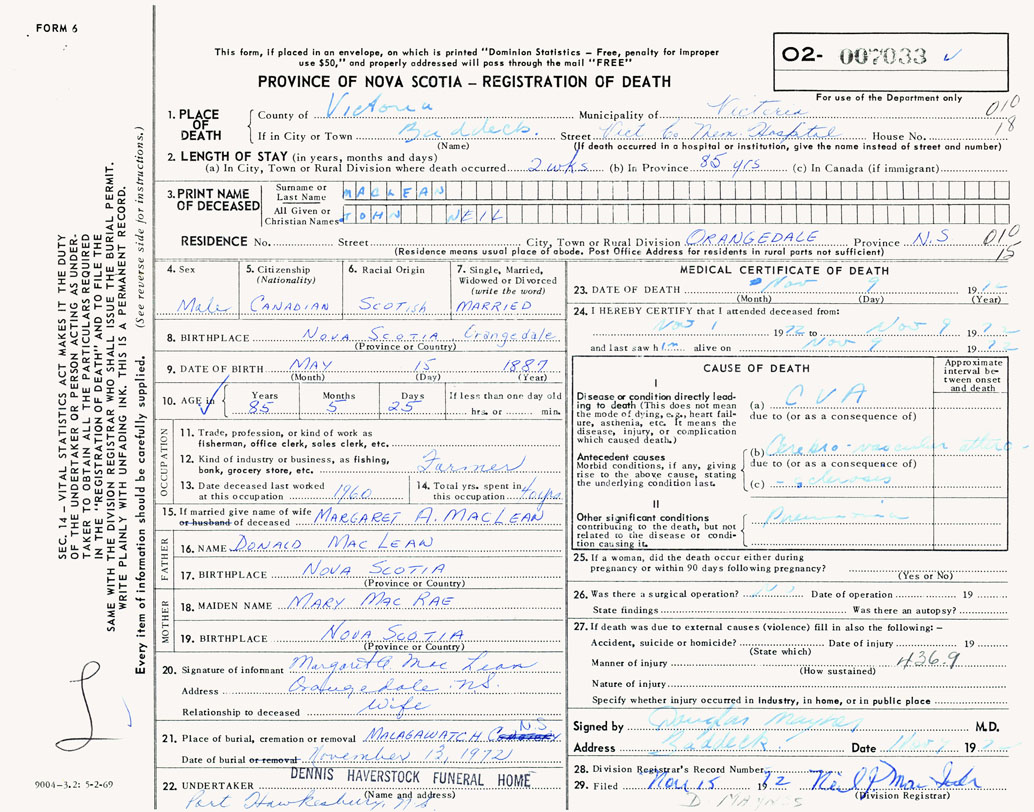 FORM 6
This form, if placed in an envelope, on which is printed "Dominion Statistics – Free, penalty for improper
use $50," and properly addressed will pass through the mail "FREE"
PROVINCE OF NOVA SCOTIA – REGISTRATION OF DEATH
02- 007033 ✓
For use of the Department only
1. PLACE OF DEATH
County of Victoria Municipality of Victoria 010
18
If in City or Town Baddeck. Street Vict Co Mem. Hospital House No.
(Name) (If death occurred in a hospital or institution, give the name instead of street and number)
2. LENGTH OF STAY (in years, months and days)
(a) In City, Town or Rural Division where death occurred 2 wks (b) In Province 85 yrs (c) In Canada (if immigrant)
3. PRINT NAME OF DECEASED
Surname or Last Name MACLEAN
All Given or Christian Names JOHN NEIL
RESIDENCE No. Street City, Town or Rural Division ORANGEDALE Province N.S 010
15
(Residence means usual place of abode. Post Office Address for residents in rural parts not sufficient)
4. Sex
Male
5. Citizenship
(Nationality)
CANADIAN
6. Racial Origin
SCOTISH
7. Single, Married,
Widowed or Divorced
(write the word)
MARRIED
8. BIRTHPLACE NOVA SCOTIA Orangedale
(Province or Country)
9. DATE OF BIRTH MAY 15 1887
(Month) (Day) (Year)
10. AGE in
Years Months Days If less than one day old
85 5 25 hrs. or min.
OCCUPATION
11. Trade, profession, or kind of work as
fisherman, office clerk, sales clerk, etc.
12. Kind of industry or business, as fishing,
bank, grocery store, etc. Farmer
13. Date deceased last worked
at this occupation 1960
14. Total yrs. spent in
this occupation 40 yrs
15. If married give name of wife
or husband of deceased MARGARET A. MACLEAN
FATHER
16. NAME DONALD MAC LEAN
17. BIRTHPLACE NOVA SCOTIA
(Province or Country)
MOTHER
18. MAIDEN NAME MARY MAC RAE
19. BIRTHPLACE NOVA SCOTIA
(Province or Country)
20. Signature of informant Margaret A Mac Lean
Address Orangedale NS.
Relationship to deceased Wife
21. Place of burial, cremation or removal MALAGAWATCH N.S
Date of burial or removal November 13, 1972
22. UNDERTAKER DENNIS HAVERSTOCK FUNERAL HOME
(Name and address)
Port Hawkesbury, N.S
MEDICAL CERTIFICATE OF DEATH
23. DATE OF DEATH Nov 9 1972
(Month) (Day) (Year)
24. I HEREBY CERTIFY that I attended deceased from:
Nov 1 1972 to Nov 9 1972
and last saw him alive on Nov 9 1972
CAUSE OF DEATH
Approximate
interval be-
tween onset
and death
I
Disease or condition directly lead-
ing to death (This does not mean
the mode of dying, e.g., heart fail-
ure, asthenia, etc. It means the
disease, injury, or complication
which caused death.)
(a) CVA
due to (or as a consequence of)
Antecedent causes
Morbid conditions, if any, giving
rise to the above cause, stating
the underlying condition last.
(b) Cerebro-vascular athero-
due to (or as a consequence of)
(c) - sclerosis
II
Other significant conditions
contributing to the death, but not
related to the disease or condi-
tion causing it.
Pneumonia
25. If a woman, did the death occur either during
pregnancy or within 90 days following pregnancy?
(Yes or No)
26. Was there a surgical operation? Date of operation 19
State findings Was there an autopsy?
27. If death was due to external causes (violence) fill in also the following: –
Accident, suicide or homicide? Date of injury 19
(State which)
Manner of injury 436.9
(How sustained)
Nature of injury
Specify whether injury occurred in industry, in home, or in public place
Signed by Douglas M.D.
Address Baddeck Date Nov 1972
28. Division Registrar's Record Number
29. Filed Nov 15 72 Neil J Mac
(Division Registrar)
D. MAYNES
SEC. 14 – VITAL STATISTICS ACT MAKES IT THE DUTY
OF THE UNDERTAKER OR PERSON ACTING AS UNDER-
TAKER TO OBTAIN ALL THE PARTICULARS REQUIRED
IN THE "REGISTRATION OF DEATH" AND TO FILE THE
SAME WITH THE DIVISION REGISTRAR WHO SHALL ISSUE THE BURIAL PERMIT.
WRITE PLAINLY WITH UNFADING INK. THIS IS A PERMANENT RECORD.
Every item of information should be carefully supplied. (See reverse side for instructions.)
9004-3.2: 5-2-69